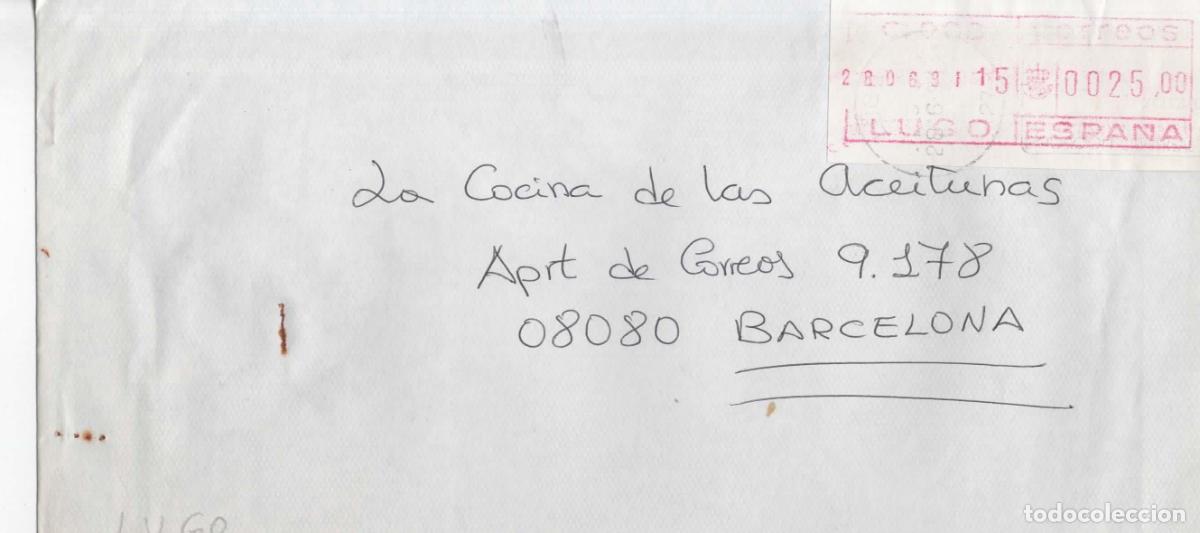 Correos
280691 15 0025,00
LUGO ESPAÑA
La Cocina de las Aceitunas
Aprt de Correos 9.178
08080 BARCELONA
LUGO
todocoleccion